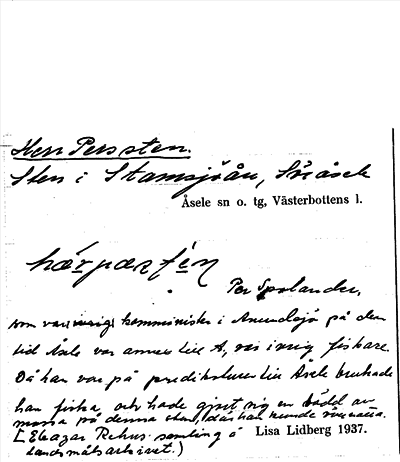 Herr Perssten.
Sten i Stamsjöån, Söråsele
Åsele sn o. tg, Västerbottens l.
hærpæstén
Per Spolander,
som var komminister i Anundsjö på den
tid Åsele var annex till A, var ivrig fiskare.
Då han var på predikoturer till Åsele brukade
han fiska och hade gjort sig en bädd av
mossa på denna sten, där han kunde
[Eleazar Rehns samling å
landsmålsarkivet.)
Lisa Lidberg 1937.